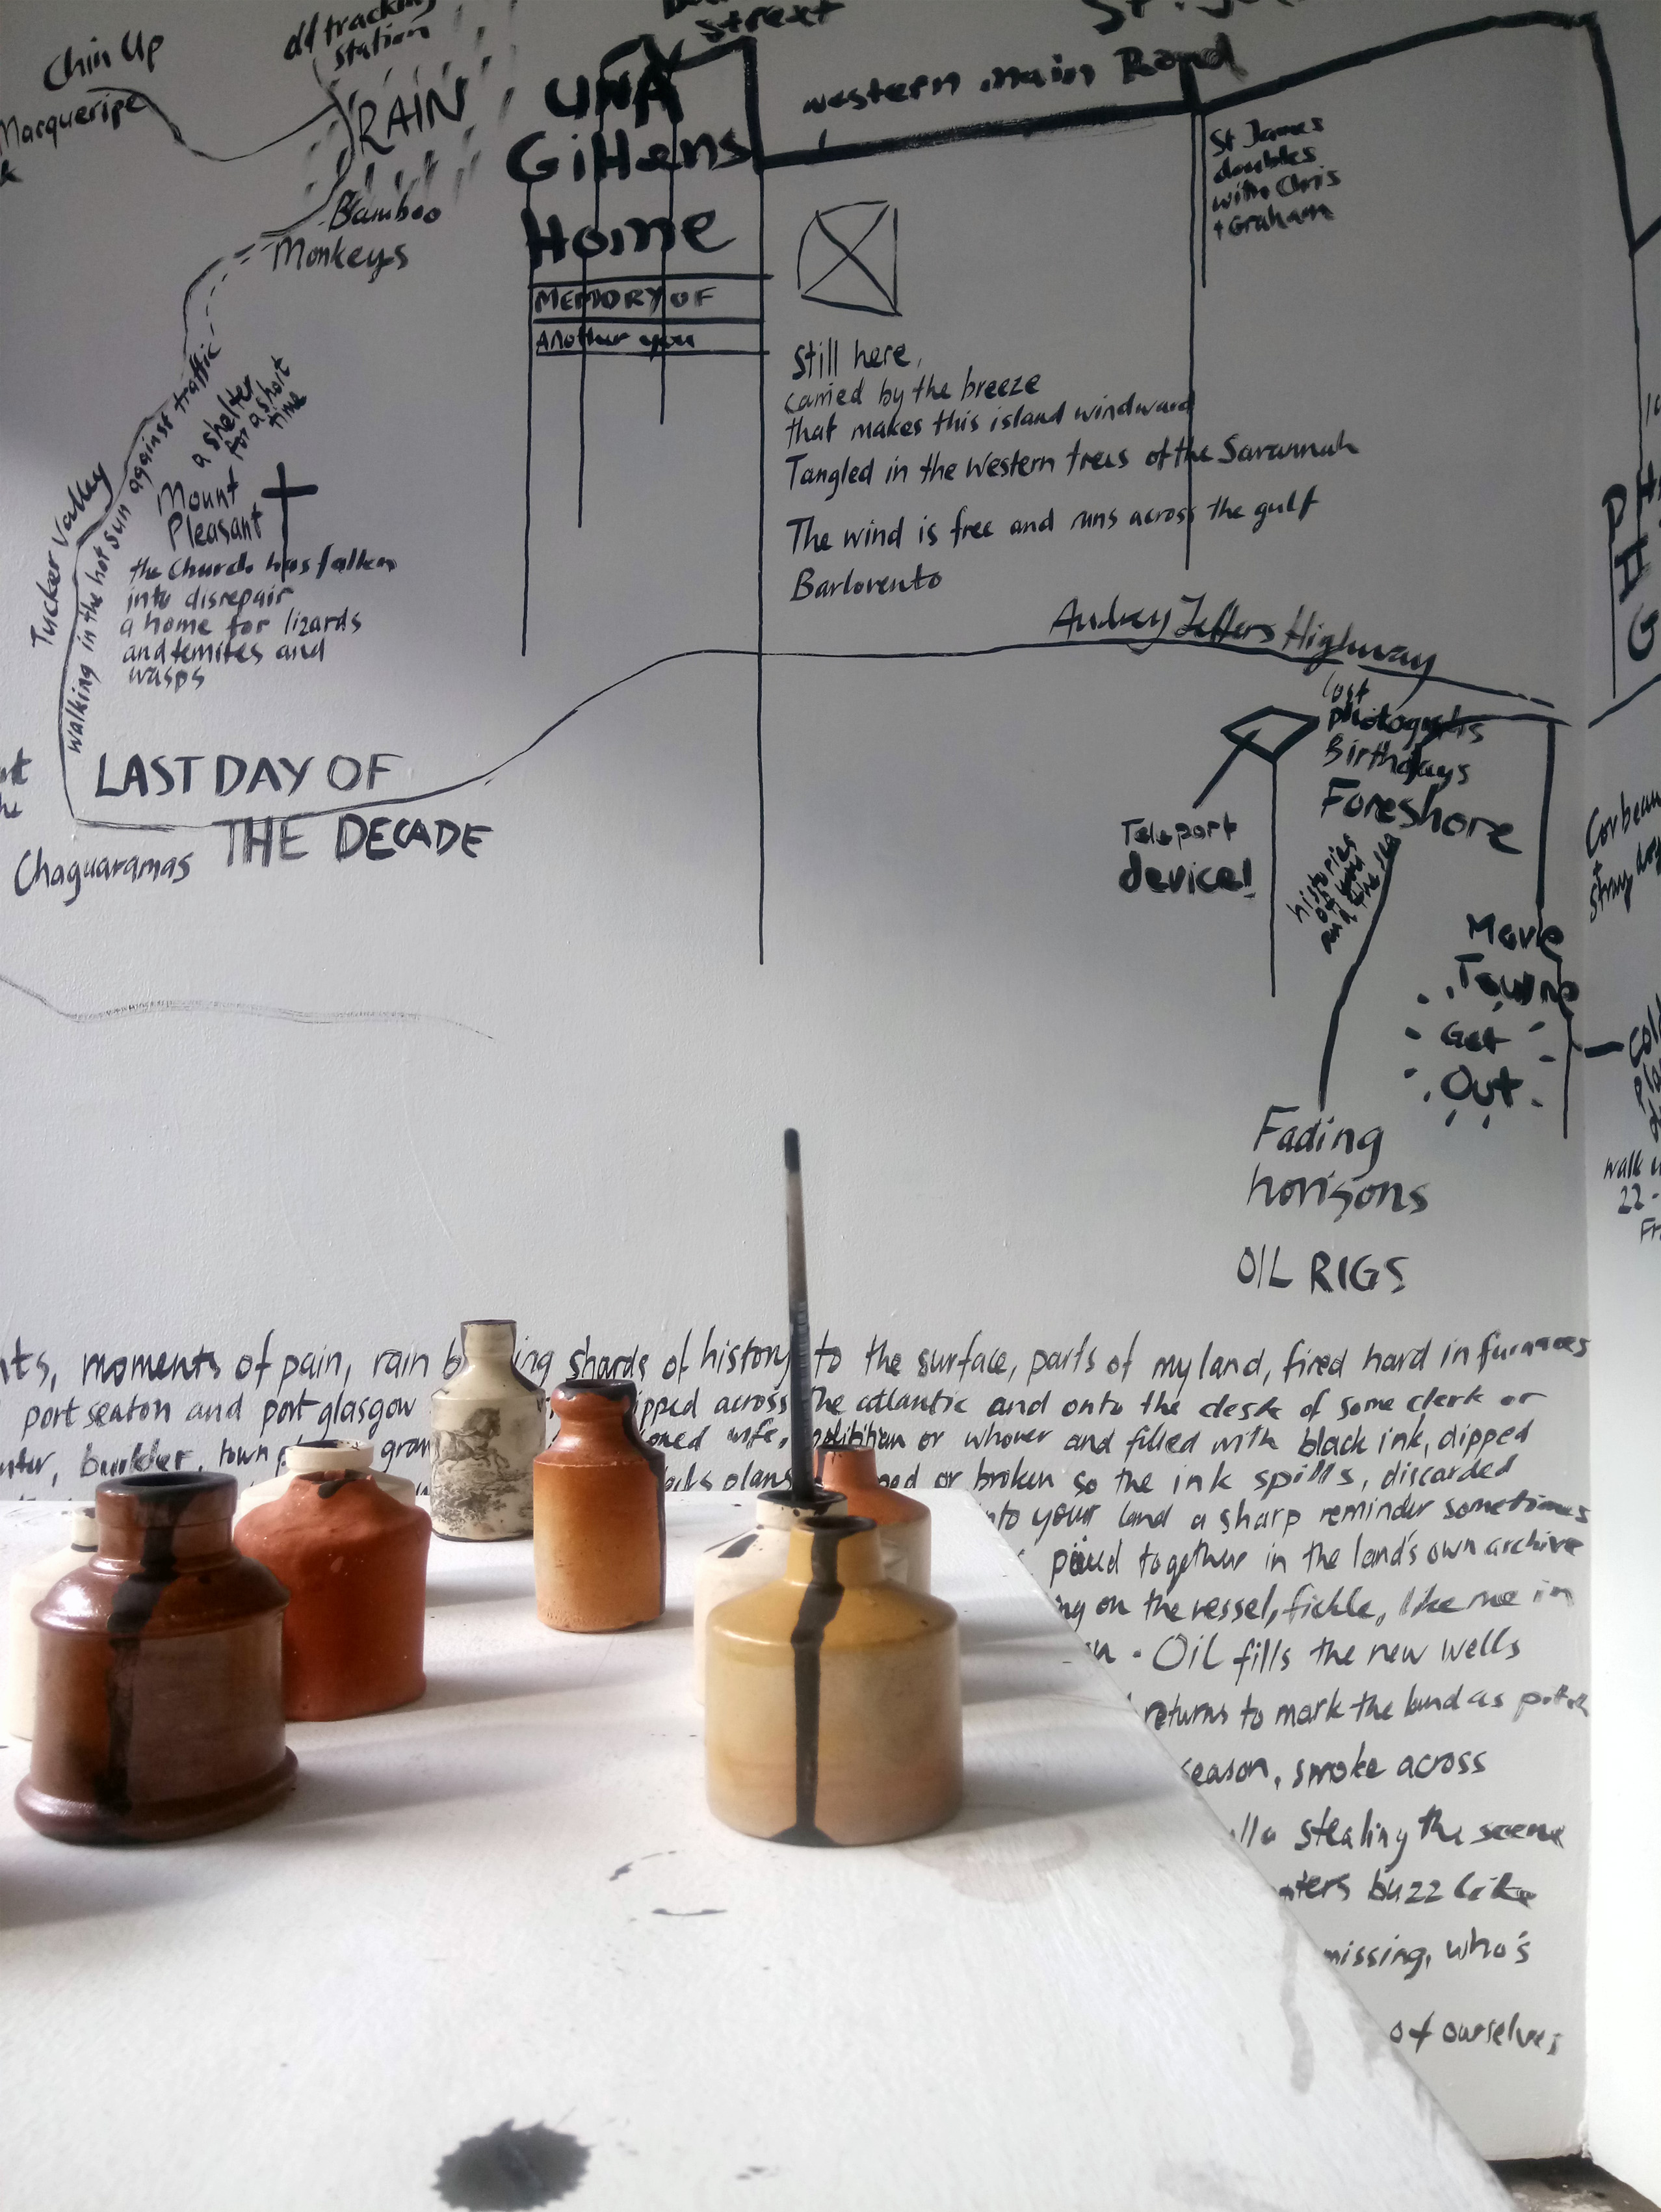 Chin Up
Macqueripe
old tracking
station
RAIN
Bamboo
Monkeys
against traffic
a shelter
for a short
time
Tucker Valley
walking in the hot sun
Mount
Pleasant
the Church has fallen
into disrepair
a home for lizards
and temites and
wasps
LAST DAY OF
THE DECADE
Chaguaramas
Street
UNA
GiHens
Home
MEMORY OF
Another you
western main Road
St James
doubles
with Chris
+ Graham
Still here,
carried by the breeze
that makes this island windward
Tangled in the Western trees of the Savannah
The wind is free and runs across the gulf
Barlovento
Audrey Jeffers Highway
lost
photographs
Birthdays
Foreshore
Teleport
device!
histories
of
and the sea
Movie
Towne
Get
Out
Fading
horisons
OIL RIGS
Corbeau
+
stray
walk
22-
moments of pain, rain shards of history to the surface, parts of my land, fired hard in furnaces
port seaton and port glasgow across the atlantic and onto the desk of some clerk or
builder, town wife, or whover and filled with black ink, dipped
plans or broken so the ink spills, discarded
your land a sharp reminder sometimes
together in the land's own archive
on the vessel, fickle, like me in
. Oil fills the new wells
returns to mark the land as
season, smoke across
stealing the scene
buzz like
missing, who's
of ourselves